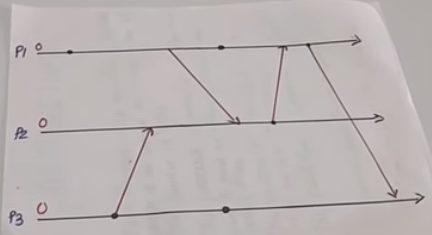 P1 0
P2 0
P3 0